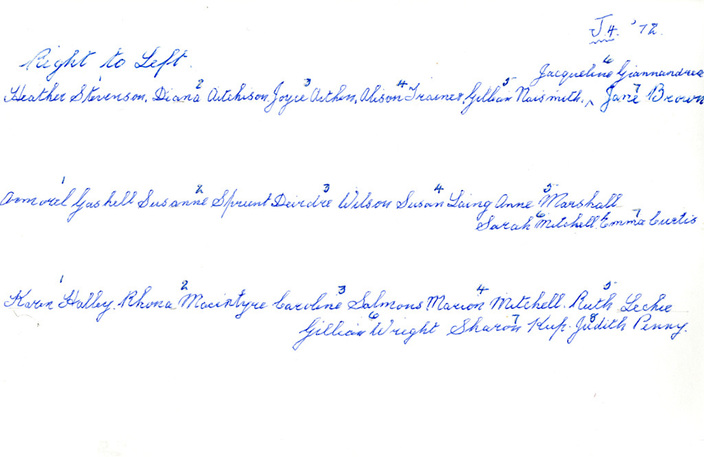 J4. '72.
Right to Left.
Jacqueline 6 Giannandrea
Heather 1 Stevenson, Diana 2 Aitchison, Joyce 3 Aitken, Alison 4 Trainer, Gillian 5 Naismith, ^ Jane 7 Brown
1 2 3 4 5
Annorel Gaskell Susanne Spruent Deirdre Wilson Susan Laing Anne Marshall
Sarah 6 Mitchell, Emma 7 Curtis
1 2 3 4 5
Karen Halley, Rhona Macintyre Caroline Salmons, Marion Mitchell, Ruth Leckie
Gillian 6 Wright Sharon 7 Kup. Judith 8 Penny.